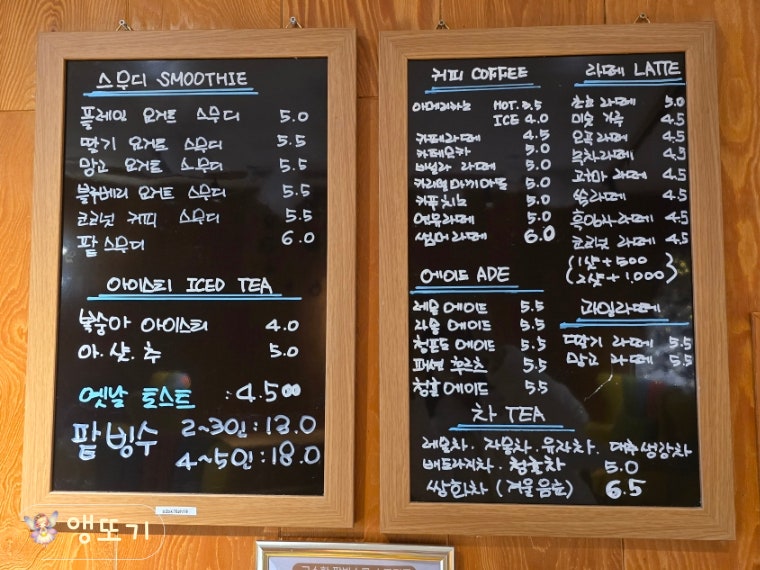 스무디 SMOOTHIE
플레인 요거트 스무디 5.0
딸기 요거트 스무디 5.5
망고 요거트 스무디 5.5
블루베리 요거트 스무디 5.5
코코넛 커피 스무디 5.5
팥 스무디 6.0
아이스티 ICED TEA
복숭아 아이스티 4.0
아.샷.추 5.0
옛날 토스트 :4.500
팥빙수 2~3인:13.0
4~5인:18.0
커피 COFFEE
아메리카노 HOT. 3.5
ICE 4.0
카페라떼 4.5
카페모카 5.0
바닐라 라떼 5.0
카라멜마끼아또 5.0
카푸치노 5.0
연유라떼 5.0
썸머라떼 6.0
에이드 ADE
레몬에이드 5.5
자몽에이드 5.5
청포도 에이드 5.5
패션 후르츠 5.5
청귤에이드 5.5
라떼 LATTE
초코라떼 5.0
미숫가루 4.5
오곡라떼 4.5
녹차라떼 4.5
고구마 라떼 4.5
쑥라떼 4.5
흑임자라떼 4.5
코코넛 라떼 4.5
(1샷+500)
(2샷+1,000)
과일라떼
딸기 라떼 5.5
망고 라떼 5.5
차 TEA
레몬차. 자몽차. 유자차. 대추생강차
배도라지차. 청귤차 5.0
쌍화차 (겨울음료) 6.5
앵또기